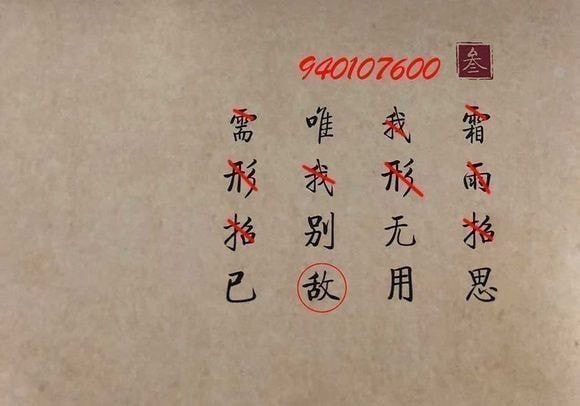 940107600
叁
霜雨招思
我形无用
唯我别敌
需形招已